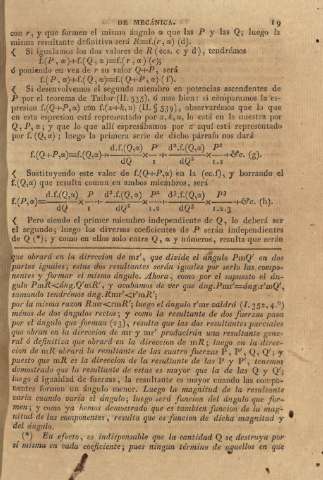 DE MECÁNICA. 19
con r, y que formen el mismo ángulo α que las P y las Q; luego la
misma resultante definitiva será R=f.(r, α) (d).
Si igualamos los dos valores de R (ecs. c y d), tendrémos
f.(P, α)+f.(Q, α)=f.(r, α) (e);
ó poniendo en vez de r su valor Q+P, será
f.(P, α)+f.(Q, α)=f.(Q+P, α) (f).
Si desenvolvemos el segundo miembro en potencias ascendentes de
P por el teorema de Tailor (II. 535), ó mas bien: si comparamos la es-
presion f.(Q+P, α) con f.(x+k, u) (II. § 539), observarémos que lo que
en esta espresion está representado por x, k, u, lo está en la nuestra por
Q, P, α; y que lo que allí espresábamos por z aquí está representado
por f.(Q, α); luego la primera serie de dicho párrafo nos dará
f.(Q+P,α)=f.(Q,α)+ d.f.(Q,α)/dQ × P/1 + d².f.(Q,α)/dQ² × P²/1.2 +&c. (g).
Sustituyendo este valor de f.(Q+P,α) en la (ec.f), y borrando el
f.(Q,α) que resulta comun en ambos miembros, será
f.(P,α)= d.f.(Q,α)/dQ × P/1 + d².f.(Q,α)/dQ² × P²/1.2 + d³.f.(Q,α)/dQ³ × P³/1.2.3 +&c. (h).
Pero siendo el primer miembro independiente de Q, lo deberá ser
el segundo; luego los diversos coeficientes de P serán independientes
de Q (*); y como en ellos solo entre Q, α y números, resulta que serán
que obrará en la direccion de mx', que divide el ángulo PmQ' en dos
partes iguales; estas dos resultantes serán iguales por serlo las compo-
nentes y formar el mismo ángulo. Ahora; como por el supuesto el án-
gulo PmR<áng.Q'mR', y acabamos de ver que áng.Pmx'=áng.x'mQ',
sumando tendrémos áng.Rmx'<x'mR';
por la misma razon Rmx<xmR'; luego el ángulo x'mx valdrá (I. 352, 4.º)
ménos de dos ángulos rectos; y como la resultante de dos fuerzas pasa
por el ángulo que forman (33), resulta que las dos resultantes parciales
que obran en la direccion de mx y mx' producirán una resultante gene-
ral ó definitiva que obrará en la direccion de mR; luego en la direc-
cion de mR obrará la resultante de las cuatro fuerzas P, P', Q, Q'; y
puesto que mR es la direccion de la resultante de las P y P', tenemos
demostrado que la resultante de estas es mayor que la de las Q y Q';
luego á igualdad de fuerzas, la resultante es mayor cuando las compo-
nentes forman un ángulo menor. Luego la magnitud de la resultante
varía cuando varía el ángulo; luego será funcion del ángulo que for-
men; y como ya hemos demostrado que es tambien funcion de la mag-
nitud de las componentes, resulta que es funcion de dicha magnitud y
del ángulo.
(*) En efecto, es indispensable que la cantidad Q se destruya por
sí misma en cada coeficiente; pues ningun término de aquellos en que